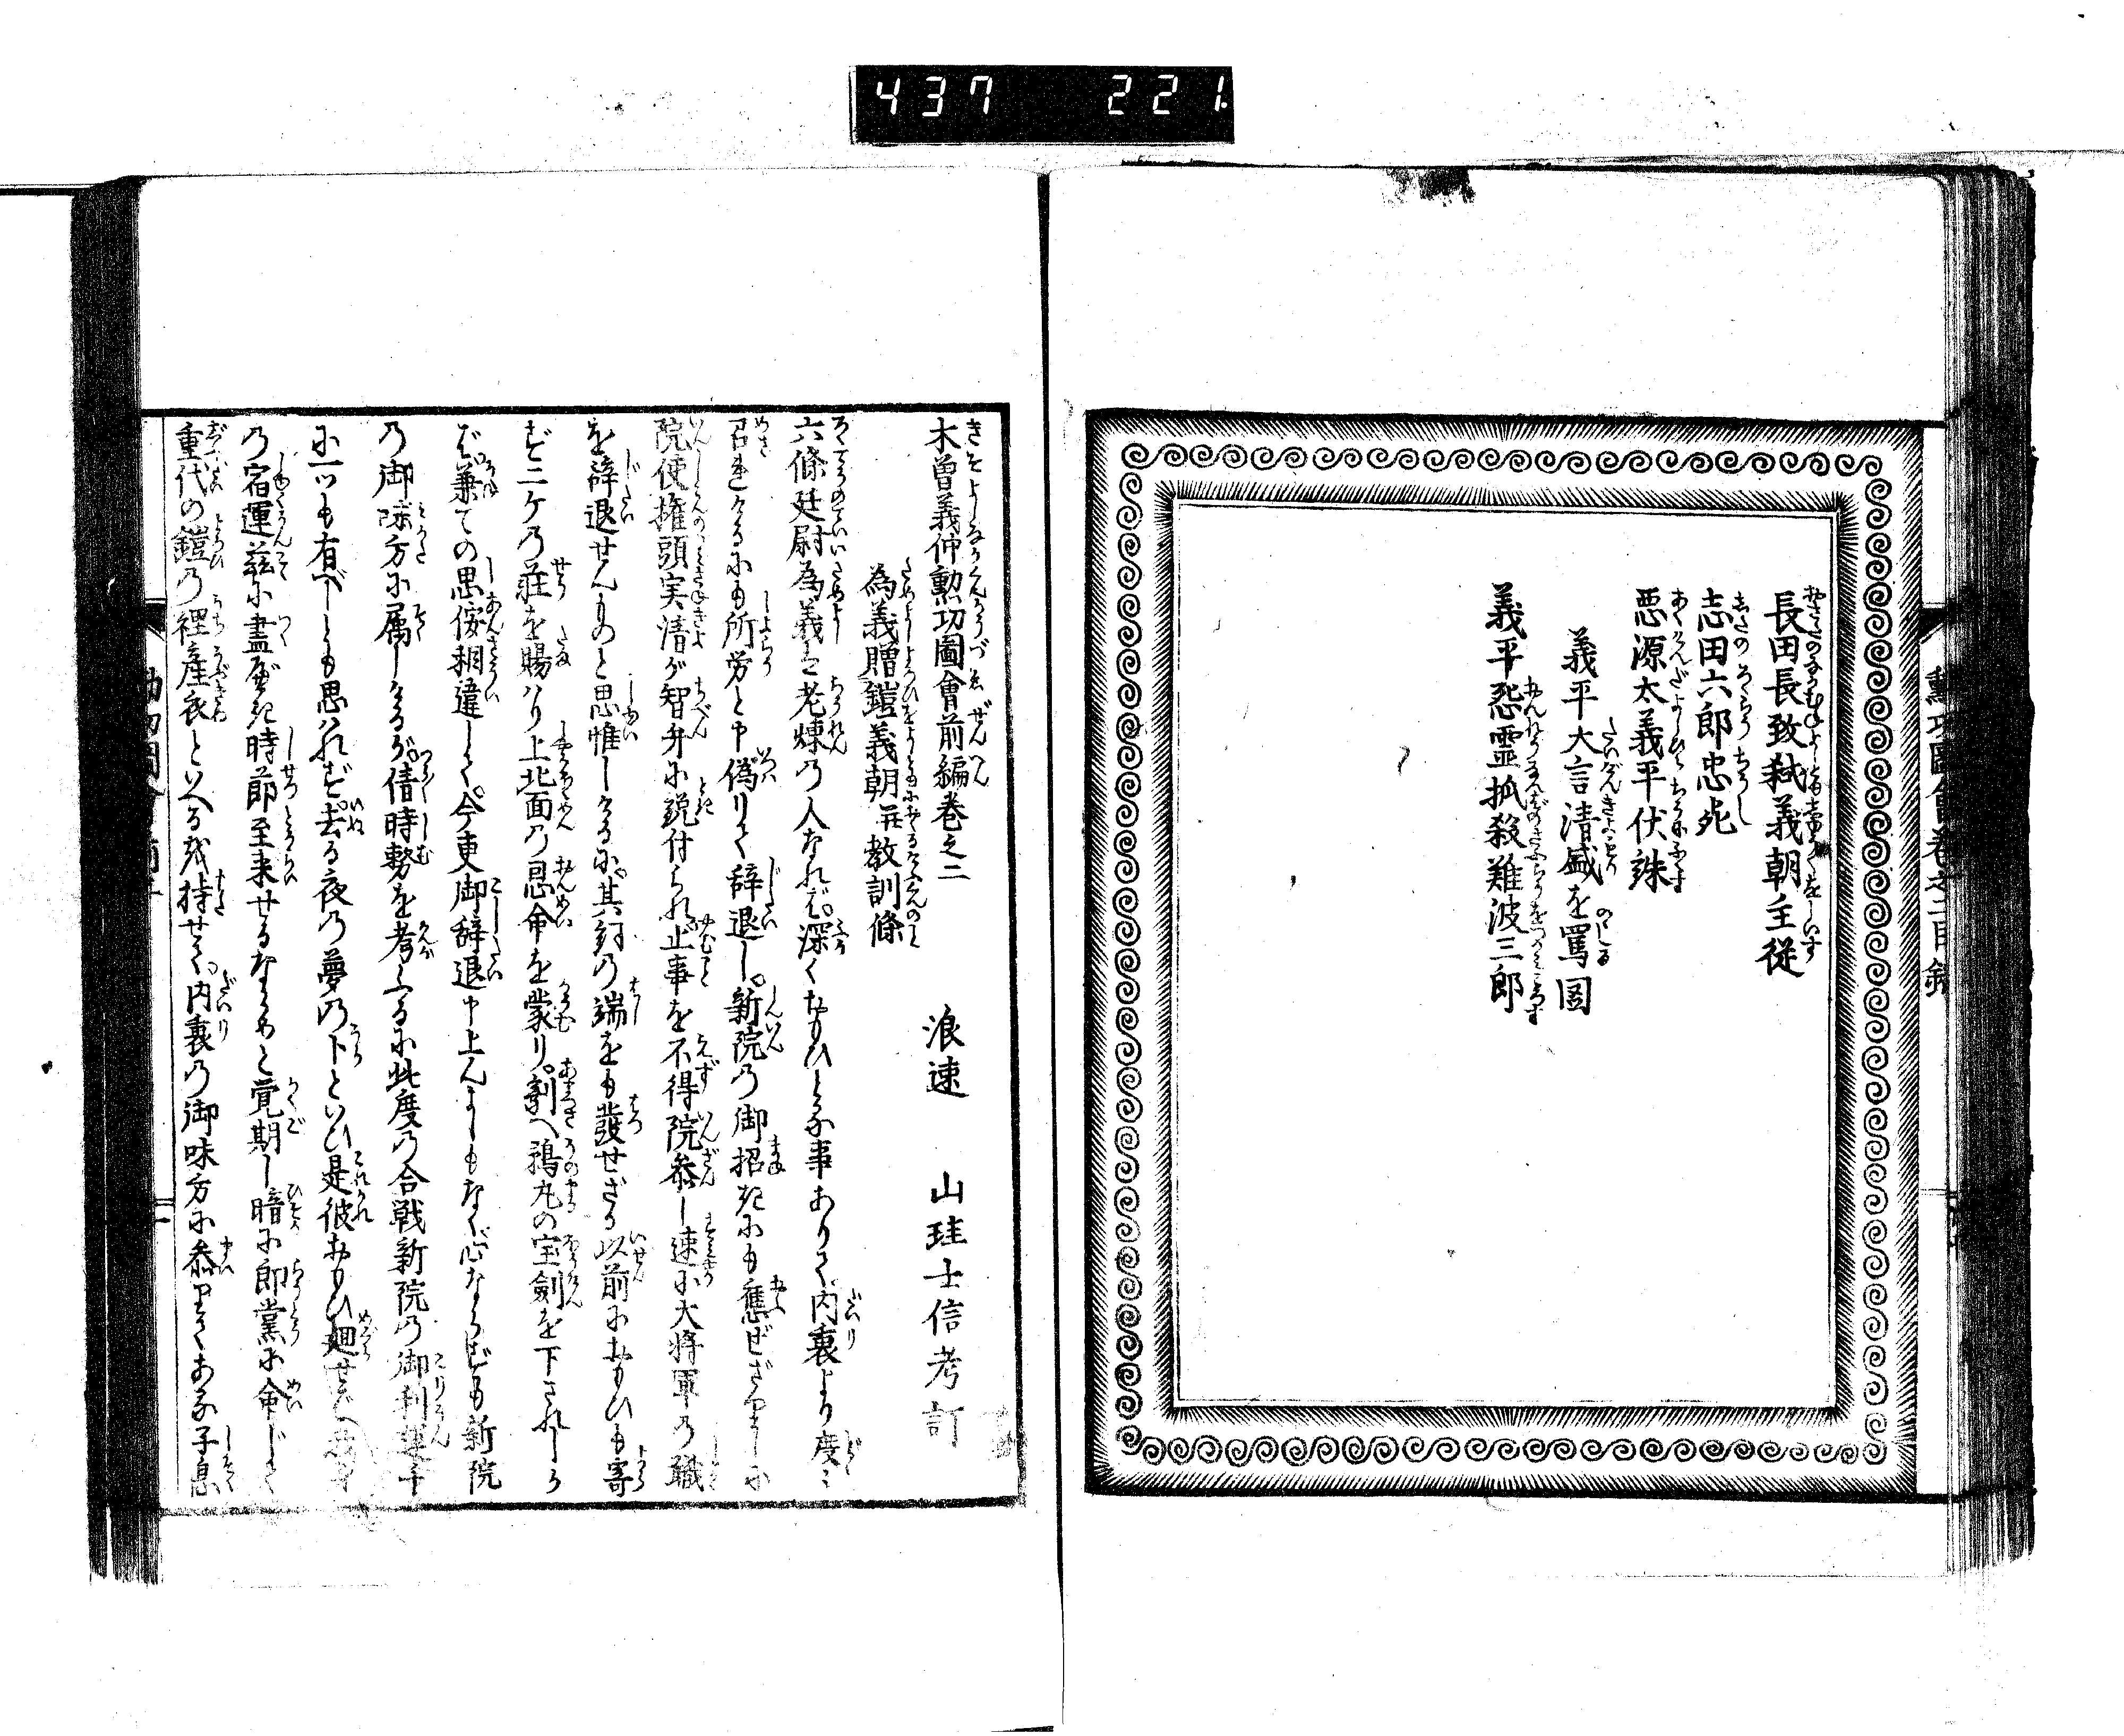 437 221
勲功圖會巻之二目録
長田長致弑義朝主従
志田六郎忠死
悪源太義平伏誅
義平大言清盛を罵図
義平怨霊抓殺難波三郎
木曽義仲勲功圖會前編巻之二
浪速 山珪士信考訂
為義贈鎧義朝并教訓條
六條廷尉為義ハ老煉の人なれバ深くおもひとる事ありて内裏より度々
召されけるにも所労と申偽りて辞退し。新院の御招きにも應ぜざりしに
院使権頭実清が智弁に説付られ止事を不得院参し速に大将軍の職
を辞退せんものと思惟しけるに其詞の端をも發せざる以前におもひも寄
ず二ケの荘を賜ハり上北面の恩命を蒙り。剰へ鵜丸の宝劍を下されしか
ば兼ての思侫相違して今更御辞退申上んよしもなく心ならずも新院
の御味方に属しけるが。倩時勢を考ふるに此度の合戦新院の御利運
に一ツも有べしとも思ハれず去る夜の夢の卜といひ是彼おもひ廻せバ
の宿運茲に盡べき時節至来せるなるめと覚期し暗に郎黨に命じて
重代の鎧の裡産衣といへるを持せて内裏の御味方に参りてある子息